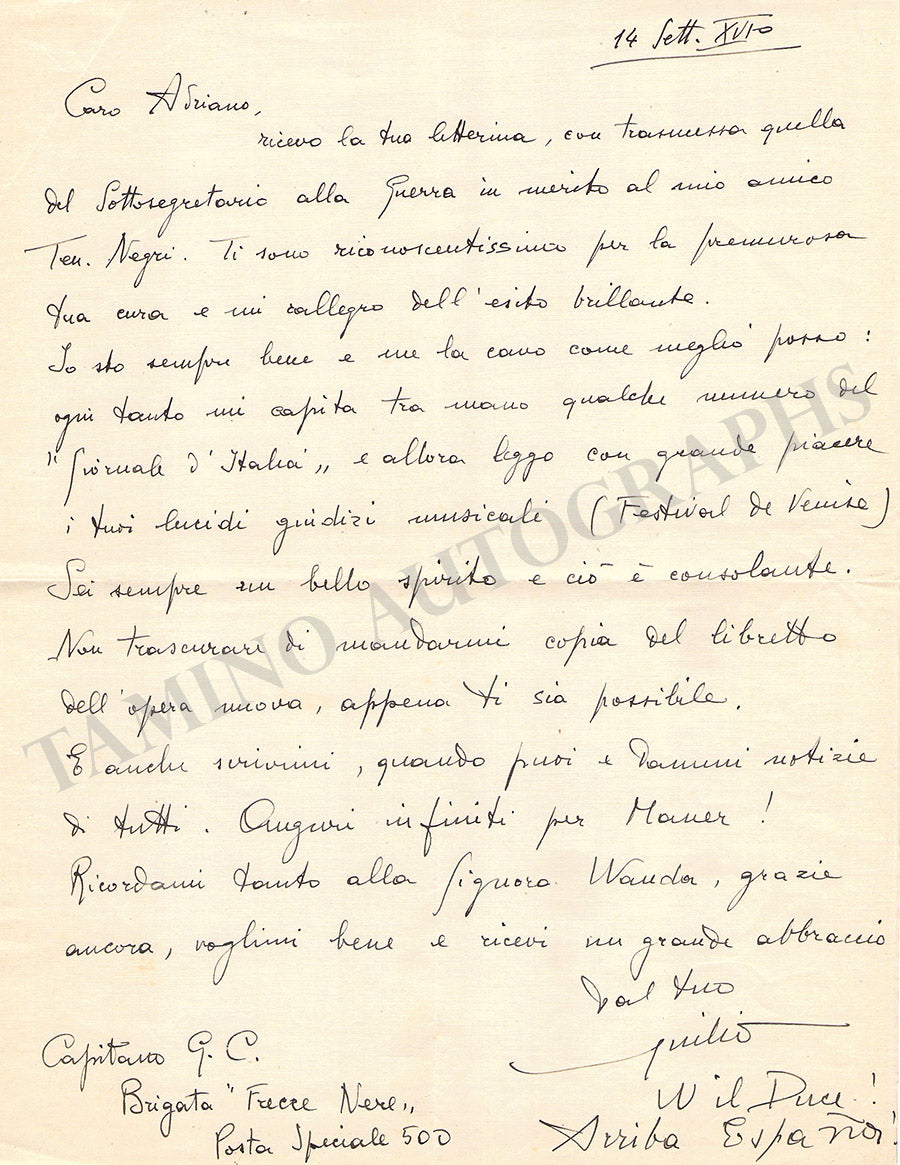 14 Sett. XVIo
Caro Adriano,
ricevo la tua letterina, con trasmessa quella
del Sottosegretario alla Guerra in merito al mio amico
Ten. Negri. Ti sono riconoscentissimo per la premurosa
tua cura e mi rallegro dell'esito brillante.
Io sto sempre bene e me la cavo come meglio posso:
ogni tanto mi capita tra mano qualche numero del
"Giornale d'Italia„ e allora leggo con grande piacere
i tuoi lucidi giudizi musicali (Festival de Venise)
Sei sempre un bello spirito e ciò è consolante.
Non trascurare di mandarmi copia del libretto
dell'opera nuova, appena ti sia possibile.
E anche scrivimi, quando puoi e dammi notizie
di tutti. Auguri infiniti per Maner!
Ricordami tanto alla Signora Wanda, grazie
ancora, voglimi bene e ricevi un grande abbraccio
dal tuo
Giulio
W il Duce!
Arriba España!
Capitano G. C.
Brigata "Frecce Nere„
Posta Speciale 500
TAMINO AUTOGRAPHS